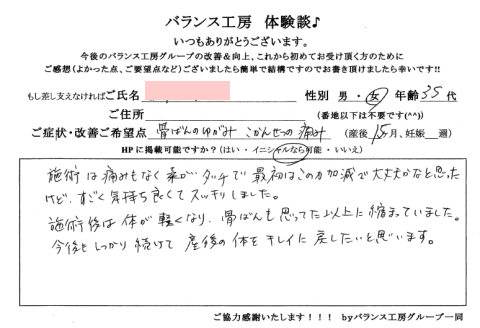 バランス工房 体験談♪
いつもありがとうございます。
今後のバランス工房グループの改善&向上、これから初めてお受け頂く方のために
ご感想(よかった点、ご要望点など)ございましたら簡単で結構ですのでお書き頂けましたら幸いです!!
もし差し支えなければご氏名 性別 男・女 年齢 35 代
ご住所 (番地以下は不要です(^^))
ご症状・改善ご希望点 骨ばんのゆがみ こかんせつの痛み (産後 15ヶ月、妊娠 週)
HPに掲載可能ですか?(はい・イニシャルなら可能・いいえ)
施術は痛みもなく柔かいタッチで最初はこの力加減で大丈夫かなと思った
けど、すごく気持ち良くてスッキリしました。
施術後は体が軽くなり、骨ばんも思ってた以上に縮まっていました。
今後もしっかり続けて産後の体をキレイに戻したいと思います。
ご協力感謝いたします!!! byバランス工房グループ一同